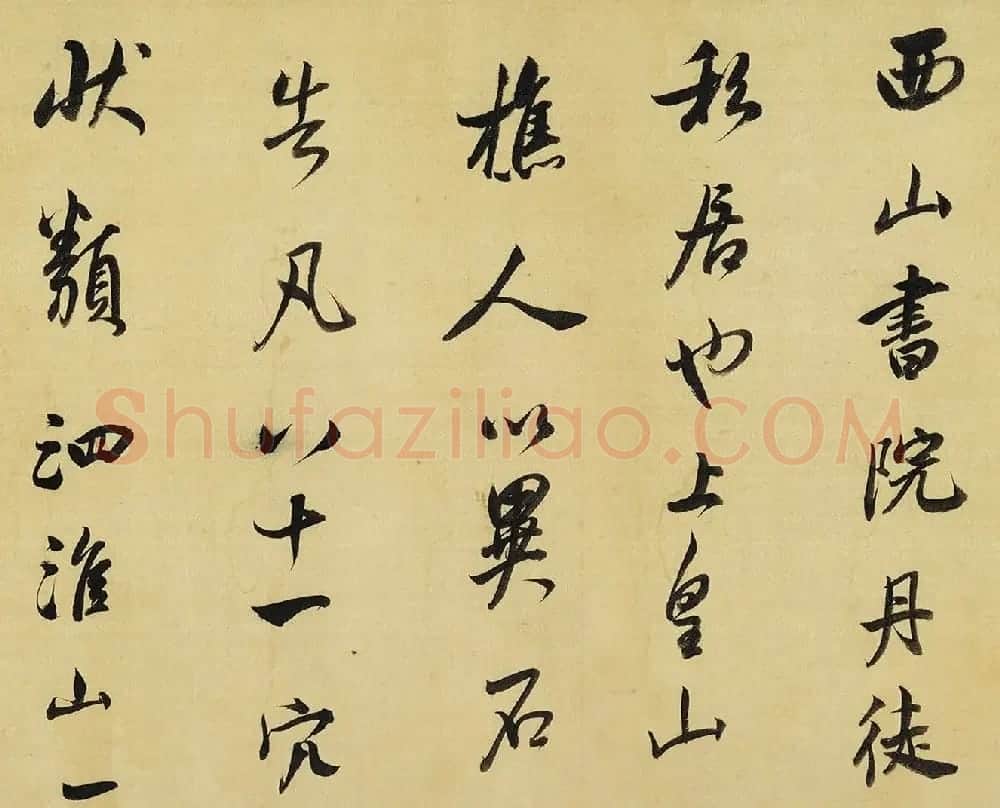 西山書院丹徒
私居也上皇山
樵人以異石
告凡八十一穴
狀類泗淮山一
Shufaziliao.COM